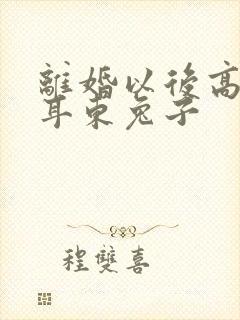 離婚以後高
耳東兔子
程雙喜